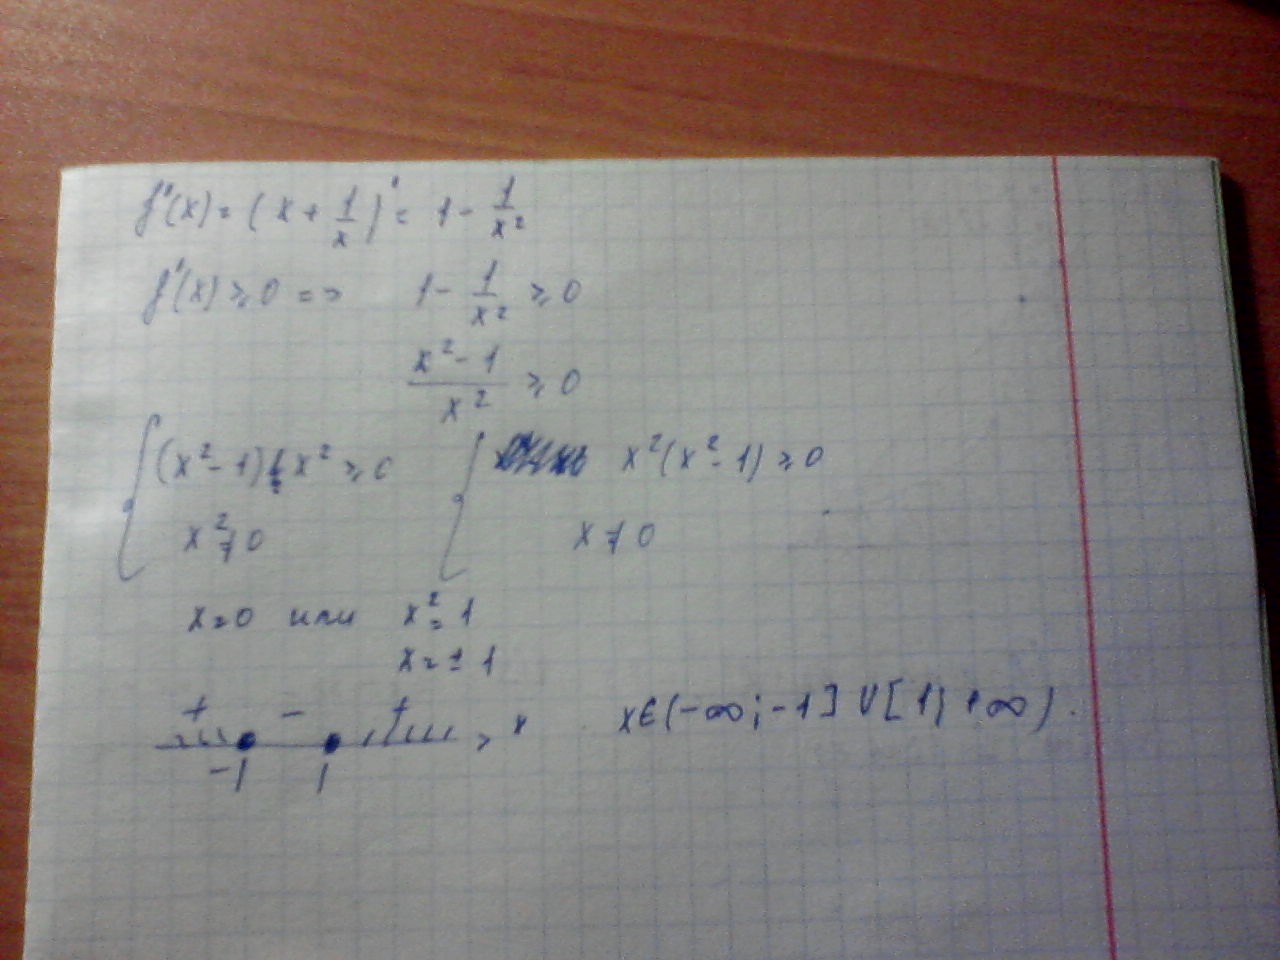 f'(x) = (x + 1/x)' = 1 - 1/x²
f'(x) ⩾ 0 => 1 - 1/x² ⩾ 0
(x² - 1)/x² ⩾ 0
{ (x² - 1) x² ⩾ 0 { x²(x² - 1) ⩾ 0
x² ≠ 0 x ≠ 0
x = 0 или x² = 1
x = ± 1
+ - + x
-1 1
x ∈ (-∞; -1] U [1; +∞).